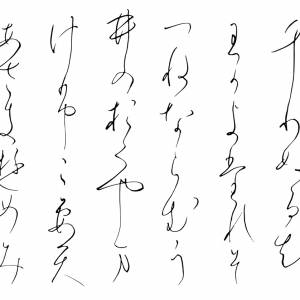 ちりぬるを
わかよたれそ
つねならむう
ゐのおくやま
けふこえて
あさきゆめみ